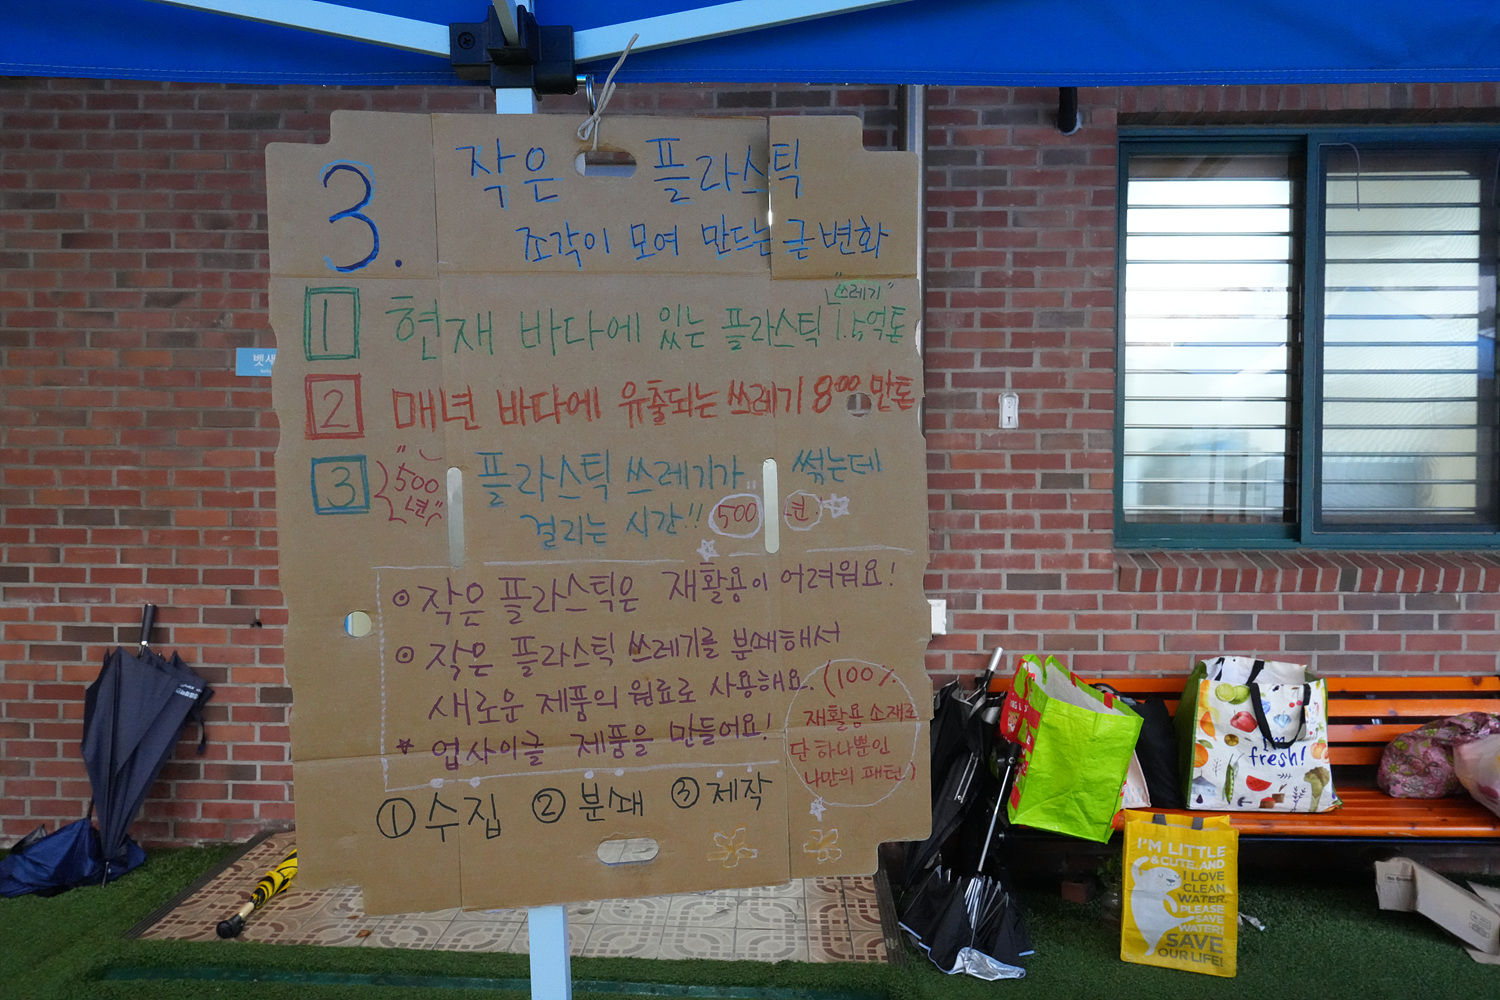 3.
작은 플라스틱
조각이 모여 만드는 큰 변화
"쓰레기"
1 현재 바다에 있는 플라스틱 1.5억톤
2 매년 바다에 유출되는 쓰레기 800만톤
3 플라스틱 쓰레기가 썩는데
"500년"
걸리는 시간!! "500년!"
작은 플라스틱은 재활용이 어려워요!
작은 플라스틱 쓰레기를 분쇄해서
새로운 제품의 원료로 사용해요.
업사이클 제품을 만들어요!
(100%
재활용 소재로
단 하나뿐인
나만의 패턴.)
① 수집 ② 분쇄 ③ 제작
I'm
fresh!
I'M LITTLE
& CUTE AND
I LOVE
CLEAN
WATER
PLEASE
SAVE
WATER!
SAVE
OUR LIFE!